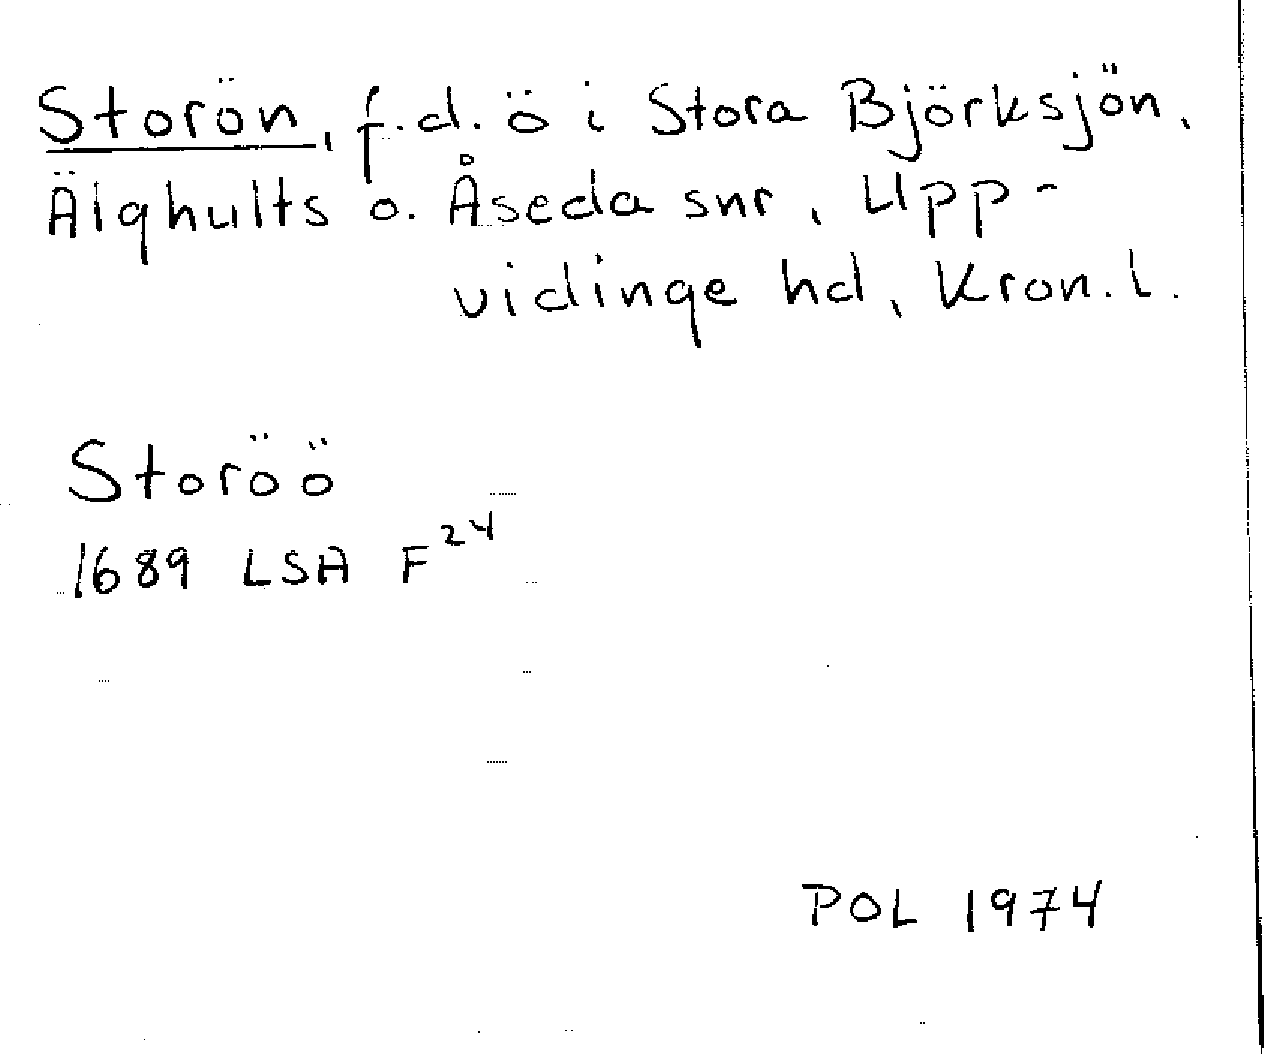 Storön, f.d. ö i Stora Björksjön,
Älghults o. Åseda snr, Upp-
vidinge hd, Kron. l.
Storöö
1689 LSA F²⁴
POL 1974